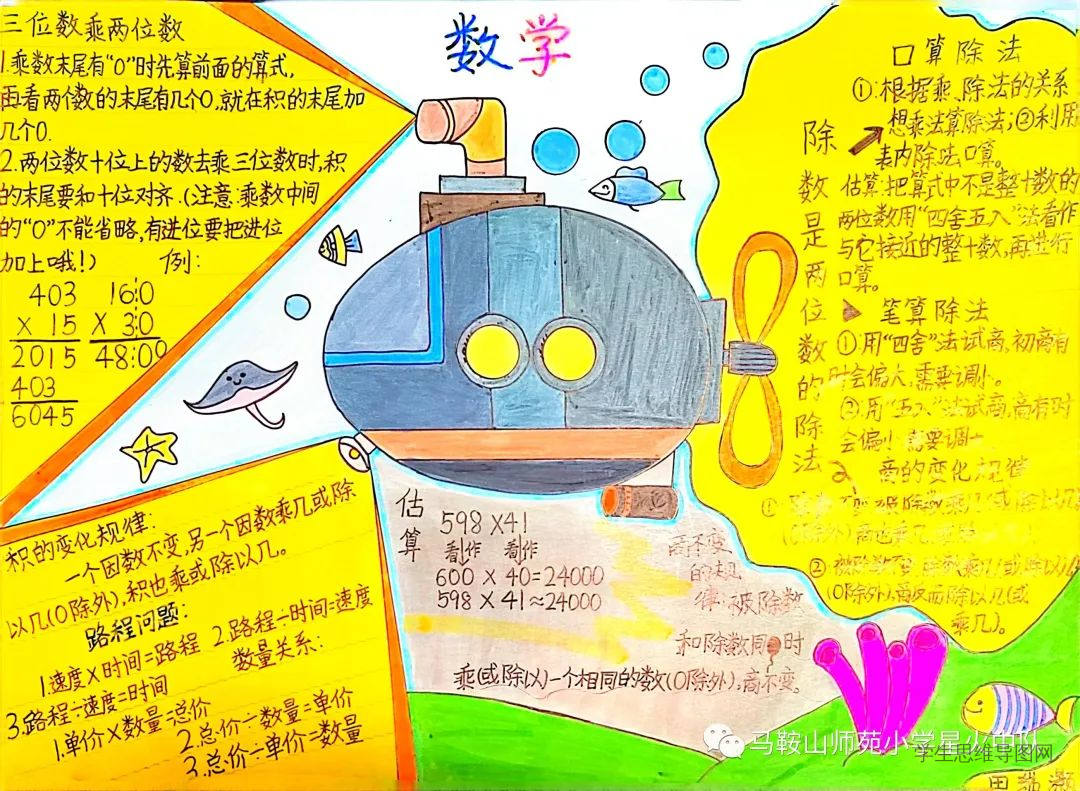 数学
三位数乘两位数
1.乘数末尾有“0”时先算前面的算式,
再看两个数的末尾有几个0,就在积的末尾加
几个0.
2.两位数十位上的数去乘三位数时,积
的末尾要和十位对齐.(注意:乘数中间
的“0”不能省略,有进位要把进位
加上哦!) 例:
403 160
× 15 × 30
2015 4800
403
6045
积的变化规律:
一个因数不变,另一个因数乘几或除
以几(0除外),积也乘或除以几。
路程问题:
1.速度×时间=路程 2.路程÷时间=速度
3.路程÷速度=时间
数量关系:
1.单价×数量=总价
2.总价÷数量=单价
3.总价÷单价=数量
估算
598×41
看作 看作
600×40=24000
598×41≈24000
商不变
的规
律:被除数
和除数同时
乘(或除以)一个相同的数(0除外),商不变。
除数是两位数的除法
口算除法
①:根据乘、除法的关系
想乘法算除法;②利用
表内除法口算。
估算:把算式中不是整十数的
两位数用“四舍五入”法看作
与它接近的整十数,再进行
口算。
笔算除法
①用“四舍”法试商,初商有
时会偏大,需要调小。
②:用“五入”法试商,商有时
会偏小,需要调大
商的变化规律
①
(0除外)
②被除数不变,除数乘几(或除以几)
(0除外),商反而除以几(或
乘几)。
马鞍山师苑小学星火中队
学生思维导图网